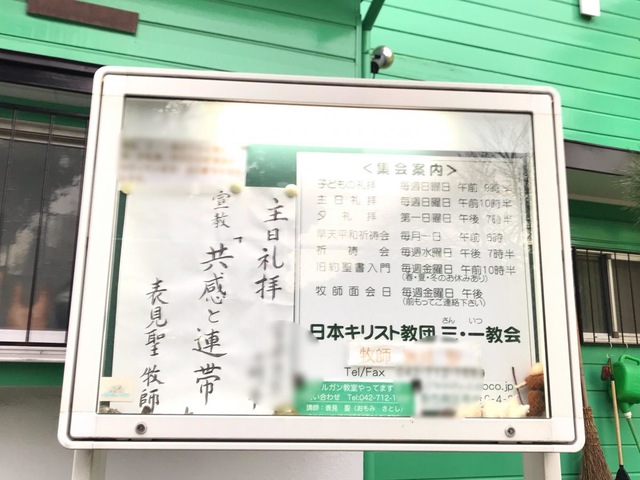 主日礼拝
宣教「共感と連帯
表見聖牧師
<集会案内>
子どもの礼拝 毎週日曜日 午前9時半
主日礼拝 毎週日曜日 午前10時半
夕礼拝 第一日曜日 午後7時半
早天平和祈祷会 毎月一日 午前6時
祈祷会 毎週水曜日 午後7時半
旧約聖書入門 毎週金曜日 午前10時半
(春・夏・冬のお休みあり)
牧師面会日 毎週金曜日 午後
(前もってご連絡下さい)
さん いつ
日本キリスト教団 三・一教会
牧師
Tel/Fax
oco.jp
ルガン教室やってます
い合わせ Tel:042-712-1
講師:表見 聖(おもみ さとし)